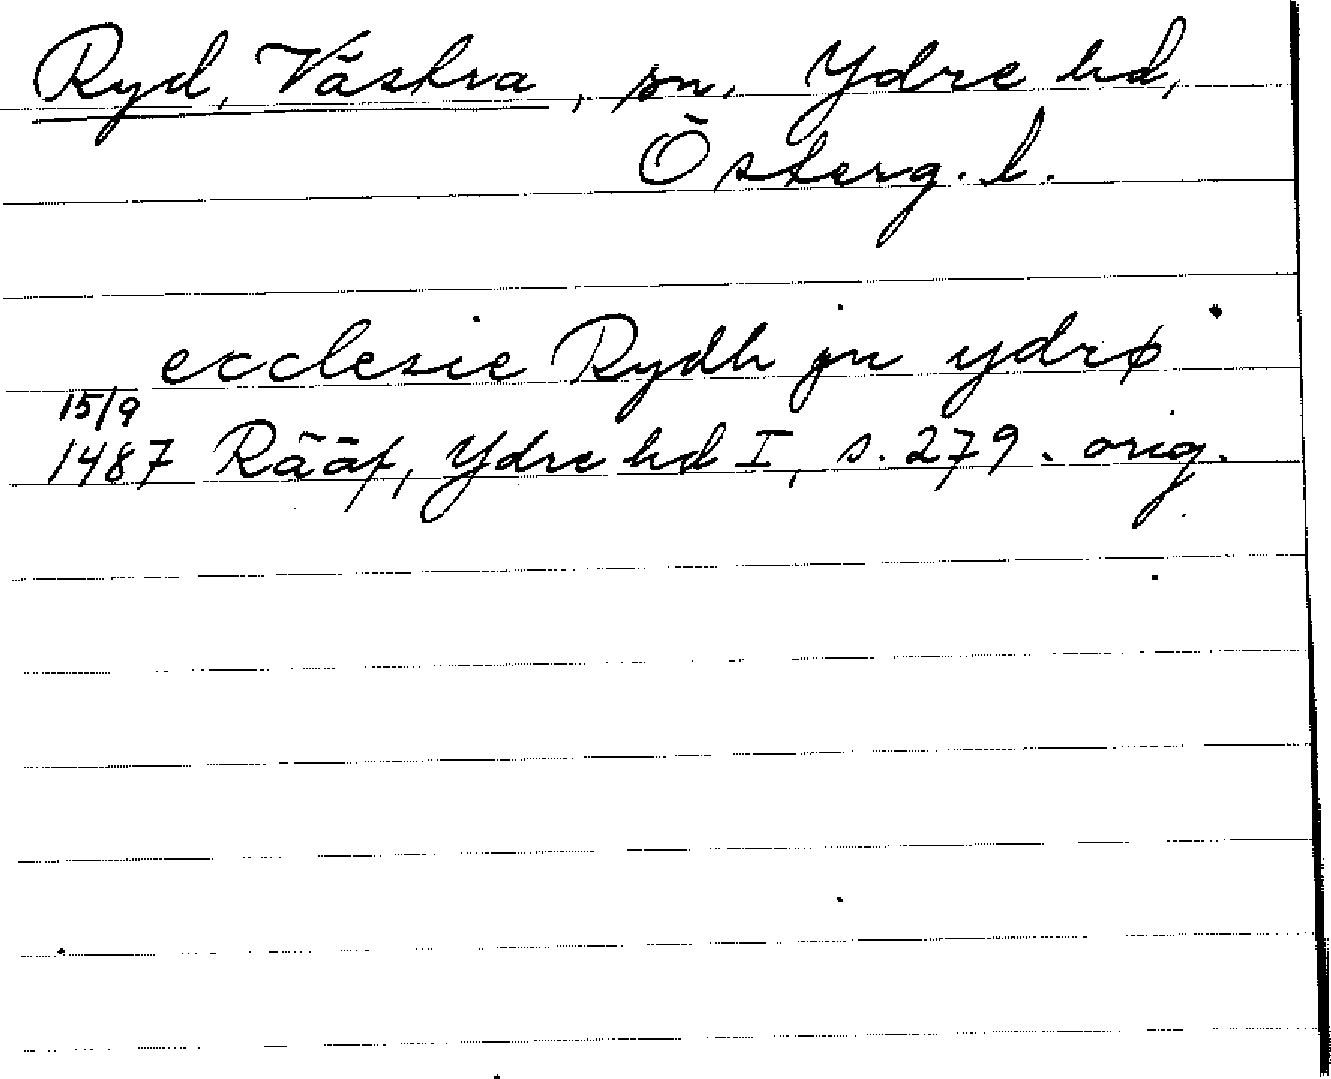 Ryd, Västra, sn, Ydre hd,
Österg. l.
ecclesie Rydh jn ydrø
15/9
1487 Rääf, Ydre hd I, s. 279. orig.